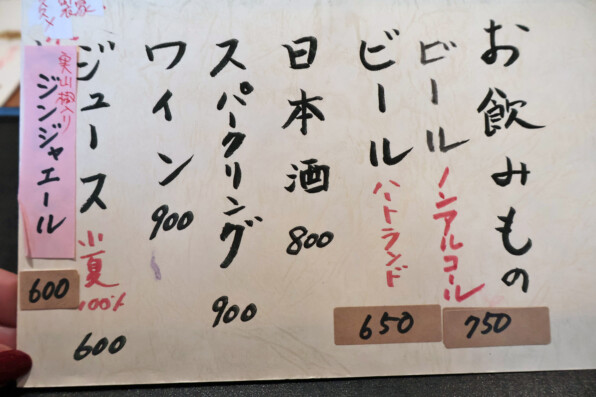 お飲みもの
ビール
ノンアルコール
750
ビール
ハートランド
650
日本酒
800
スパークリング
900
ワイン
900
ジュース
小夏
100%
600
実山椒入り
ジンジャエール
600